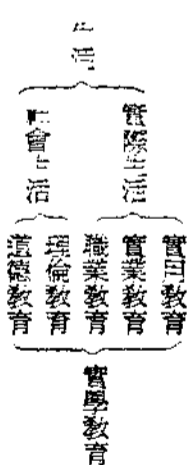 生活
實際生活
社會生活
實用教育
實業教育
職業教育
理倫教育
道德教育
實學教育